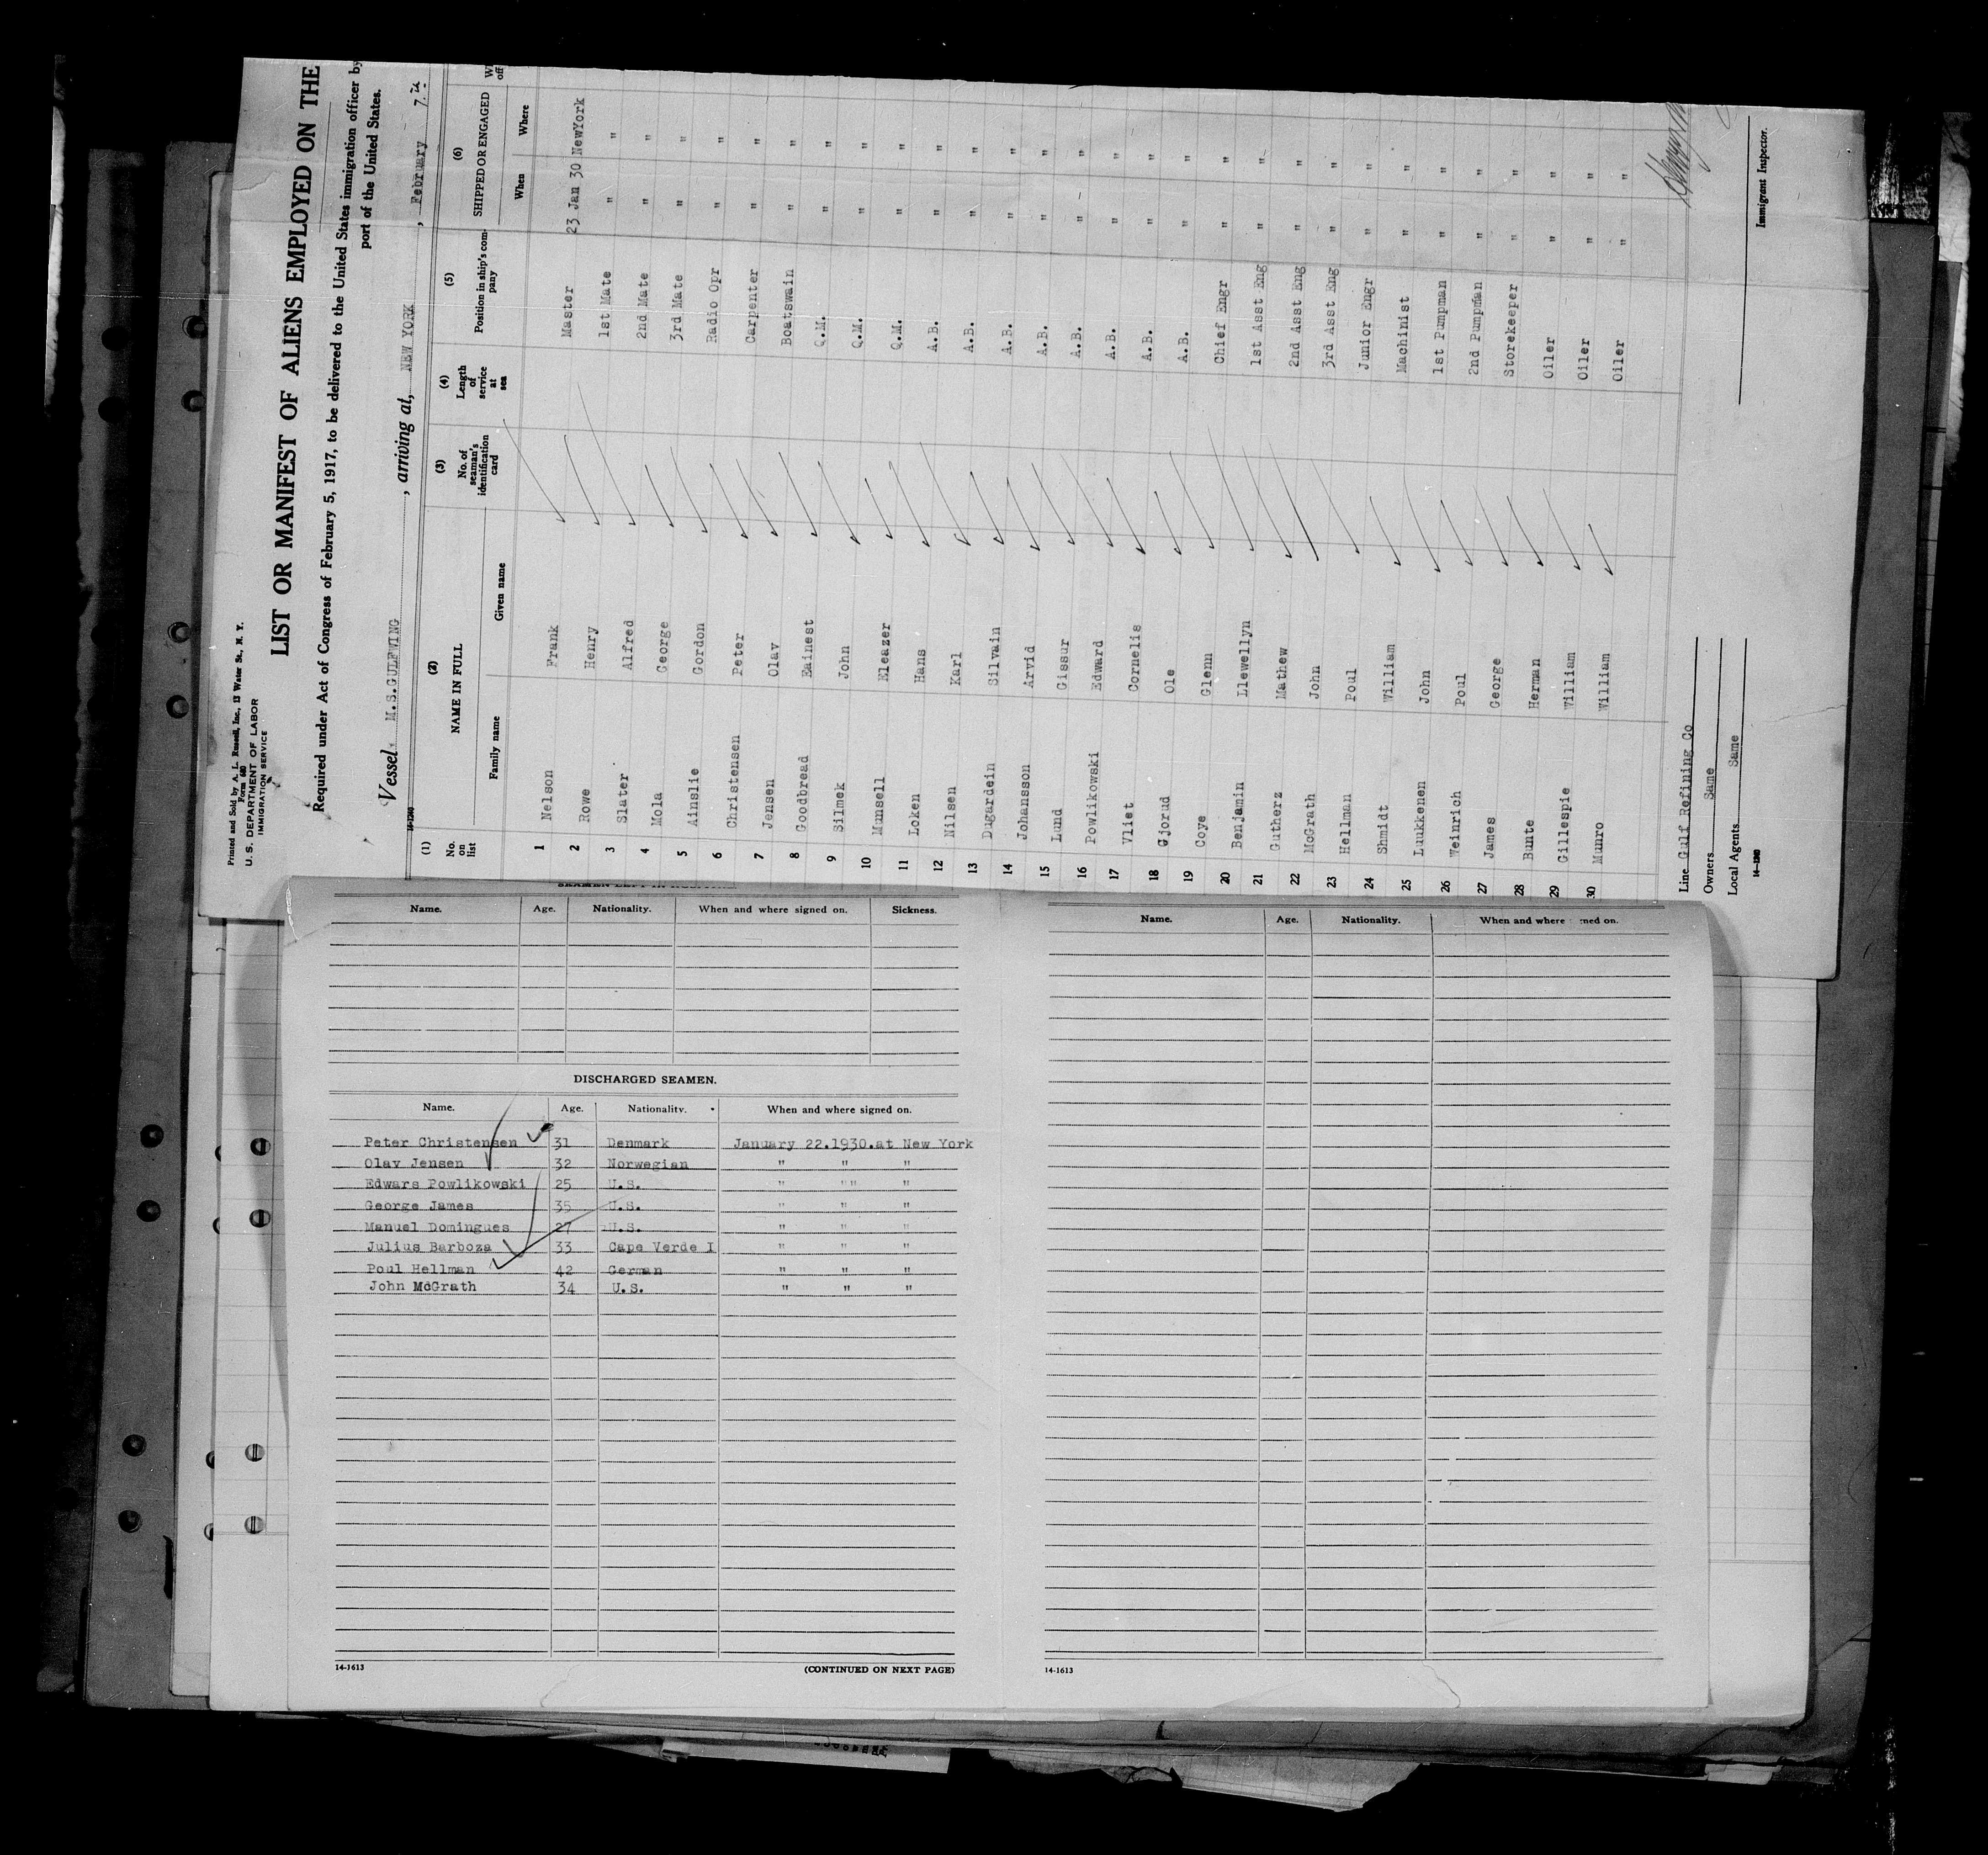 Printed and Sold by A. L. Russell, Inc., 13 Water St., N. Y.
Form 680
U. S. DEPARTMENT OF LABOR
IMMIGRATION SERVICE
LIST OR MANIFEST OF ALIENS EMPLOYED ON THE
Required under Act of Congress of February 5, 1917, to be delivered to the United States immigration officer by
port of the United States.
Vessel M.S.GULFWING, arriving at, NEW YORK, February 7
14-1240
(1) (2) (3) (4) (5) (6)
No. on list NAME IN FULL No. of seaman's identification card Length of service at sea Position in ship's company SHIPPED OR ENGAGED
Family name Given name When Where
1 Nelson Frank Master 23 Jan 30 NewYork
2 Rowe Henry 1st Mate " "
3 Slater Alfred 2nd Mate " "
4 Mola George 3rd Mate " "
5 Ainslie Gordon Radio Opr " "
6 Christensen Peter Carpenter " "
7 Jensen Olav Boatswain " "
8 Goodbread Eainest Q.M. " "
9 Silmek John Q.M. " "
10 Munsell Eleazer Q.M. " "
11 Loken Hans A.B. " "
12 Nilsen Karl A.B. " "
13 Dugardein Silvain A.B. " "
14 Johansson Arvid A.B. " "
15 Lund Gissur A.B. " "
16 Powlikowski Edward A.B. " "
17 Vliet Cornelis A.B. " "
18 Gjorud Ole A.B. " "
19 Coye Glenn Chief Engr " "
20 Benjamin Llewellyn 1st Asst Eng " "
21 Gutherz Mathew 2nd Asst Eng " "
22 McGrath John 3rd Asst Eng " "
23 Hellman Poul Junior Engr " "
24 Shmidt William Machinist " "
25 Luukkenen John 1st Pumpman " "
26 Weinrich Poul 2nd Pumpman " "
27 James George Storekeeper " "
28 Bunte Herman Oiler " "
29 Gillespie William Oiler " "
30 Munro William Oiler " "
Line Gulf Refining Co
Owners Same
Local Agents Same
Immigrant Inspector.
14-1240
Name. Age. Nationality. When and where signed on. Sickness.
DISCHARGED SEAMEN.
Name. Age. Nationality. When and where signed on.
Peter Christensen 31 Denmark January 22.1930.at New York
Olav Jensen 32 Norwegian " " "
Edwars Powlikowski 25 U.S. " "" "
George James 35 U.S. " " "
Manuel Domingues 27 U.S. " " "
Julius Barboza 33 Cape Verde I " " "
Poul Hellman 42 German " " "
John McGrath 34 U.S. " " "
14-1613 (CONTINUED ON NEXT PAGE)
Name. Age. Nationality. When and where ned on.
14-1613